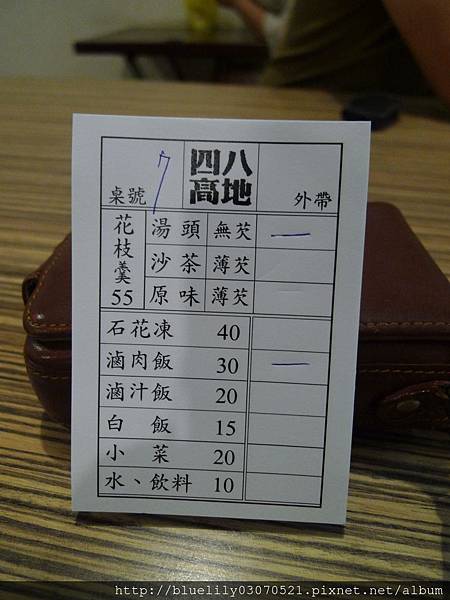 桌號 7 四八高地 外帶
花枝羹 55
湯頭 無芡 一
沙茶 薄芡
原味 薄芡
石花凍 40
滷肉飯 30 一
滷汁飯 20
白飯 15
小菜 20
水、飲料 10
http://bluelily03070521.pixnet.net/album